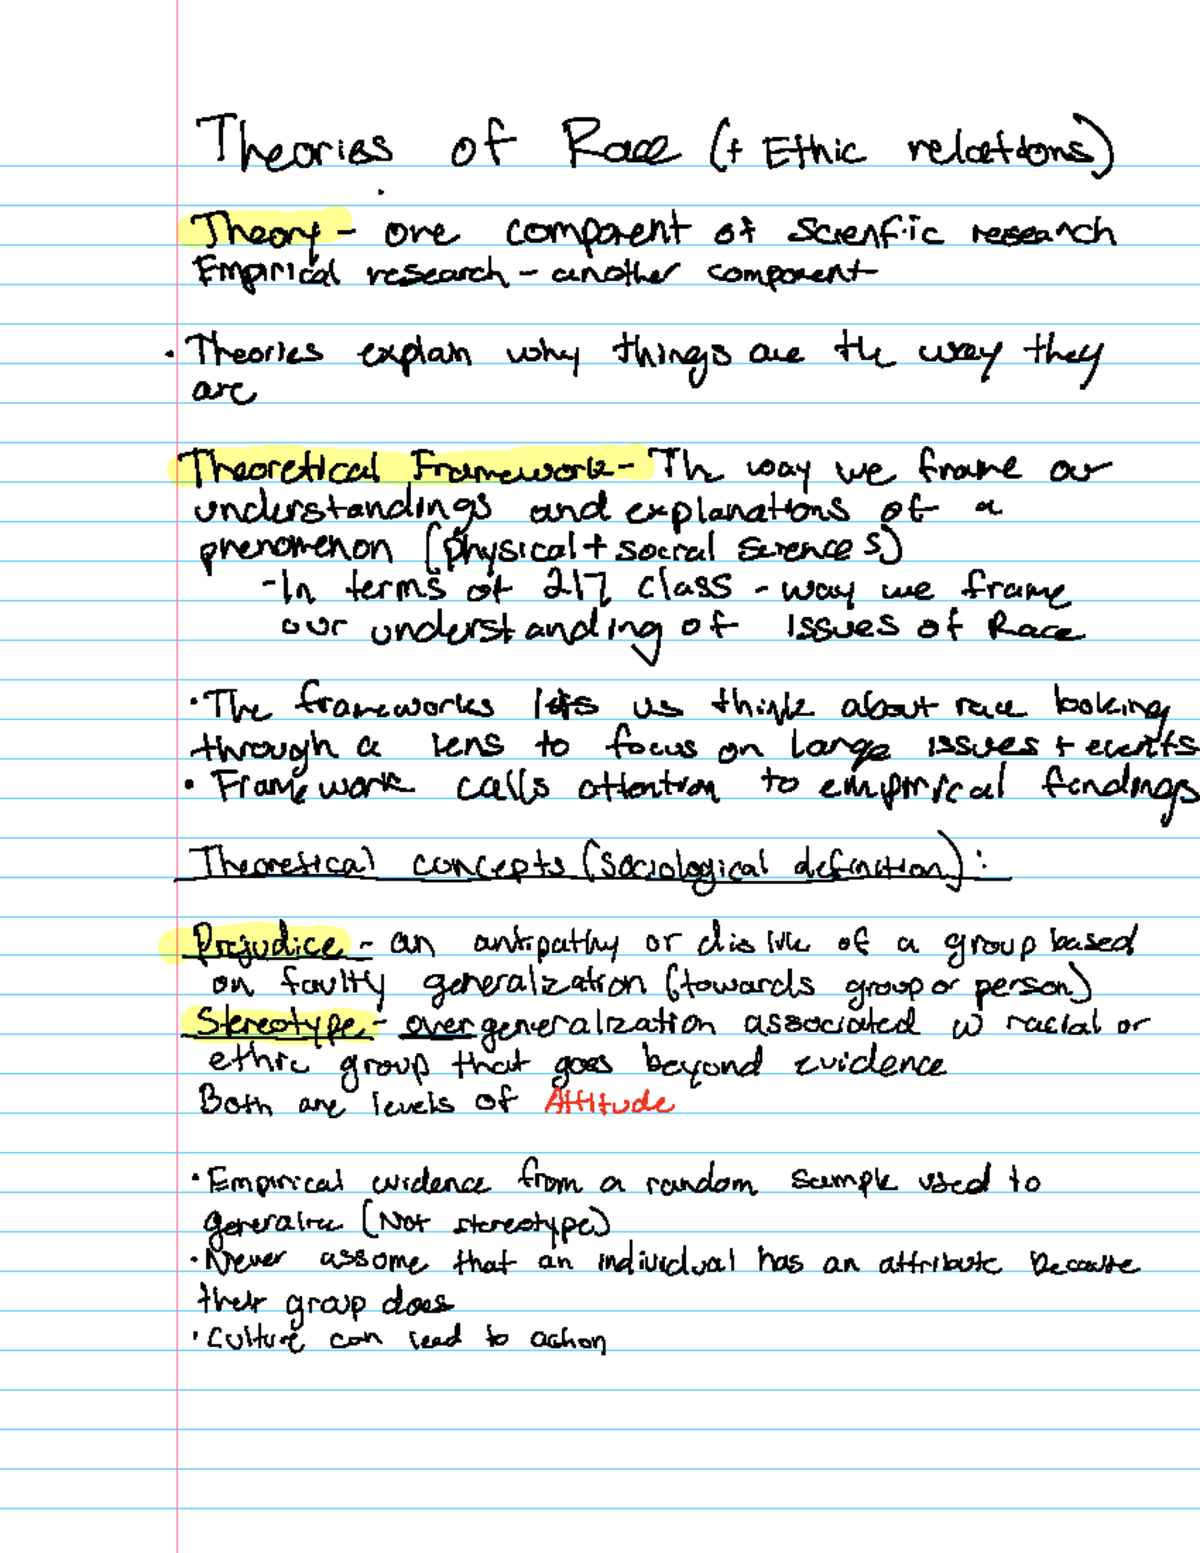 Theories of Race (+ Ethic relations)
Theory - one component of Scienfic research
Empirical research - another component
· Theories explain why things are the way they
are
Theoretical Framework - The way we frame our
understandings and explanations of a
phenomenon (physical + social sciences)
- In terms of 217 class - way we frame
our understanding of issues of Race
· The frameworks lets us think about race looking
through a lens to focus on large issues + events
· Framework calls attention to empirical findings
Theoretical concepts (sociological definition):
Prejudice - an antipathy or dislike of a group based
on faulty generalization (towards group or person)
Stereotype - overgeneralization associated w racial or
ethnic group that goes beyond evidence
Both are levels of Attitude
· Empirical evidence from a random sample used to
generalize (Not stereotype)
· Never assume that an individual has an attribute because
their group does
· Culture can lead to action